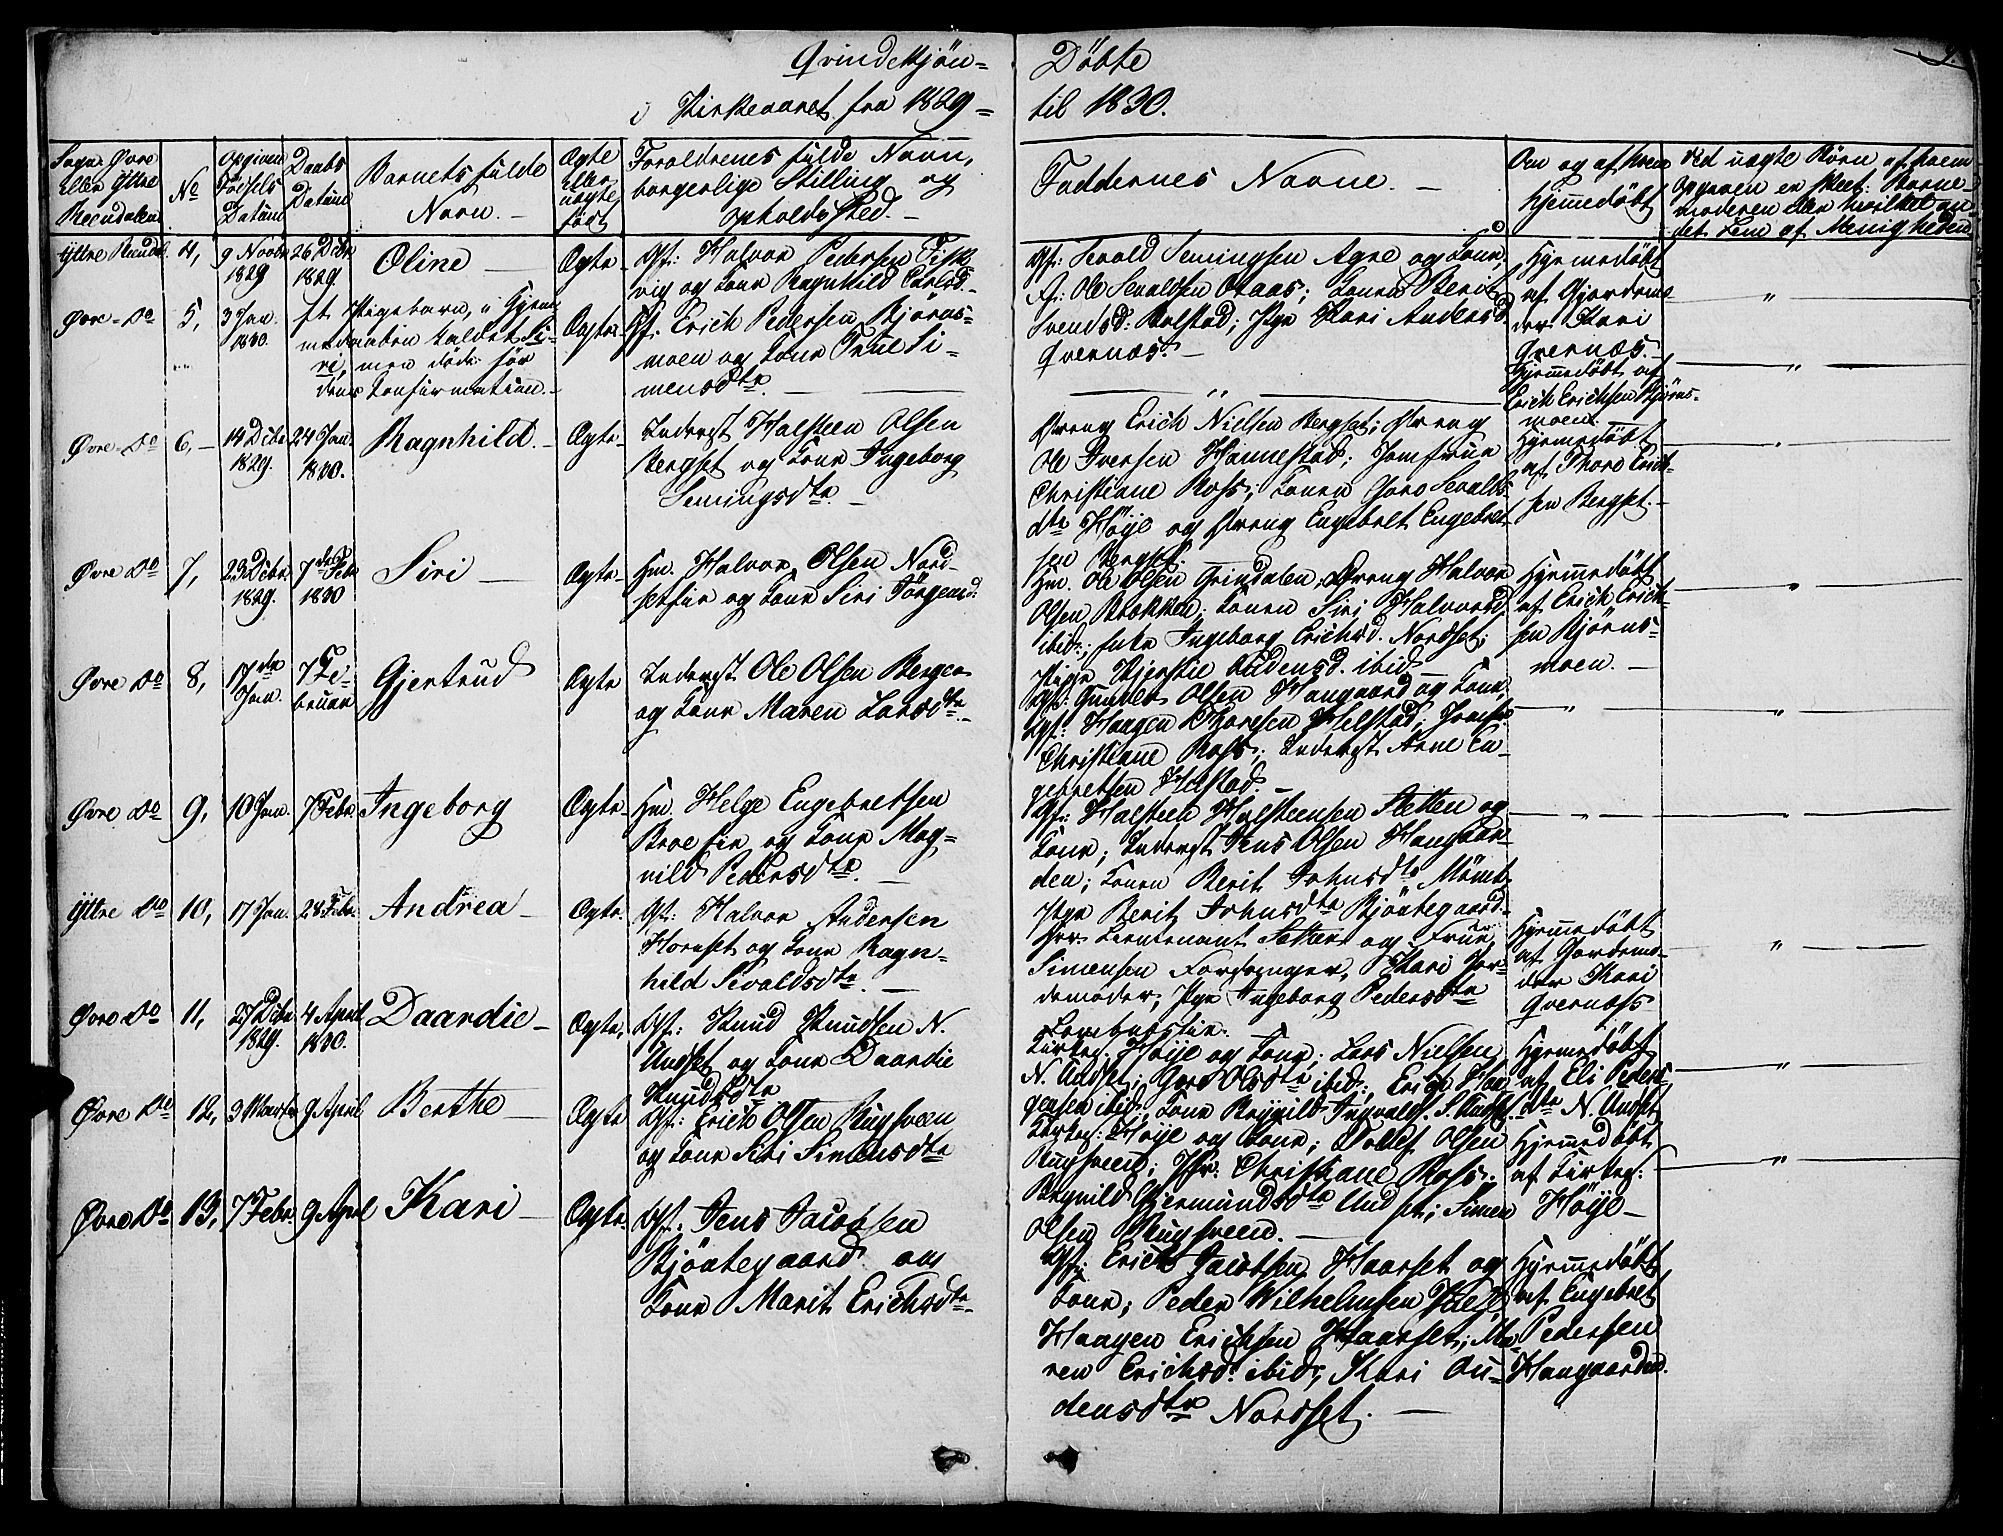 Qvindekjön= Döbte
i Kirkeaaret fra 1829= til 1830.
9.
Sogn: Övre eller Yttre Reendalen
No
Opgiven Födsels Datum
Daabs Datum
Barnets fulde Navn. –
Ægte eller uægte födt
Forældrenes fulde Navn, borgerlige Stilling og Opholdssted. –
Faddernes Navne. –
Om og af hvem hjemedöbt
Ved uægte Börn af hvem Opgiven er skeet: Barnemoderen eller hvilket andet Lem af Menigheden
Yttre Reendl. 4, 9 Novbr 1829 26 Dcbr 1829. Oline – Ægte
Gf: Halvor Pedersen Fisk
vig og Kone Ragnhild Carlsd.
Gf: Sevold Semingsen Agre og Kone;
Ole Sevaldsen Aaas; Konen Berit
Svendsd: Bolstad; Pige Kari Andersd
Qvernæs. –
Hjemedöbt
af Gjordemo
der Kari
Qvernæs. –
Övre – Do 5, 3 Jan. 1830 et Pigebarn, i Hjem
medaaben kaldet Si=
ri, men döde för
dens Confirmation. –
Ægte
Gf: Erich Pedersen Björns=
moen og Kone Siri Si=
mensdtr. –
Hjemedöbt af
Erich Erichsen Björns=
moen. –
Övre – Do 6, – 14 Dcbr 1829. 24 Jan. 1830. Ragnhild. – Ægte
Inderst Halsteen Olsen
Bergset og Kone Ingeborg
Semingsdtr. –
Dreng Erich Nielsen Bergset; Dreng
Ole Iversen Hannestad; Jomfrue
Christiane Ross; Konen Goro Sevalds
dtr Höye og Dreng Engebret Engebret
sen Bergset.
Hjemedöbt
af Thore Erich=
sen Bergset. –
Övre Do 7, 23 Dcbr. 1829. 7de Febr 1830 Siri – Ægte
Hm. Halvor Olsen Nord=
setför og Kone Siri Jörgensd:
Hm. Ole Olsen Grindalen; Dreng Halvor
Olsen Brokken; Konen Siri Halvorsd.
ibid.; Enke Ingeborg Erichsd. Nordset;
Pige Kjerstie Oudensd. ibid
Hjemedöbt
af Erich Erich=
sen Björns=
moen. –
Övre Do 8, 17de Jan. 7 Fe=
bruar Gjertrud Ægte
Inderst Ole Olsen Bergen
og Kone Maren Larsdtr. –
Gf: Gunder Olsen Haugaard og Kone;
Gf: Haagen Thoresen Helstad; Jomfr:
Christiane Ross; Inderst Arne En=
gebretsen Helstad. –
Övre Do 9, 10 Jan. 7 Febr. Ingeborg Ægte
Hm. Helge Engebretsen
Broeför og Kone Mag=
nild Pedersdtr. –
Gf: Halsteen Halsteensen Stetten og
Kone; Inderst Jens Olsen Haugaar=
den; Konen Berit Johnsdtr Momt
Pige Berit Johnsdtr Bjöntegaard. –
Yttre Do 10, 17 Jan. 28 Febr. Andrea – Ægte
Gf: Halvor Andersen
Hornset og Kone Ragn=
hild Sevaldsdtr. –
Hrr. Lieutenant Setter og Frue;
Simensen Forsanger, Kari Jor=
demoder; Pige Ingeborg Pedersdtr
Hjemedöbt
af Gordemo=
der Kari
Qvernæss
Övre Do 11, 27 Dcbr 1829. 4 April 1830. Daardie – Ægte,
Gf: Knud Knudsen N.
Undset og Kone Daardie
Knudsdtr
Kirkes: Höye og Kone; Lars Nielsen
N. Undset; Goro Olsdtr ibid.; Erich Haa
gensen ibid; Kone Regnild Ingvalds. S. Undset.
Hjemedöbt
af Eli Peders=
dtr N. Undset
Övre Do 12, 3 Marts 9 April Berthe – Ægte
Gf: Erich Olsen Rugsveen
og Kone Siri Simensdtr
Kirkes: Höye og Kone; Tollef Olsen
Rugsveen; Jfr. Christiane Ross;
Regnild Gjermundsdtr Undset; Simen
Olsen Rugsveen. –
Hjemedöbt
af Kirkes:
Höye –
Övre Do 13, 7 Febr. 9 April Kari – Ægte
Gf: Jens Jacobsen
Bjöntegaard og
Kone Marit Erichsdtr.
Gf: Erich Jacobsen Haarset og
Kone; Peder Wilhelmsen
Haagen Erichsen Haarset; Ma=
ren Erichsd: ibid; Kari Ou=
densdtr Nordset. –
Hjemedöbt
af Engebret
Pedersen
Haugaarden.